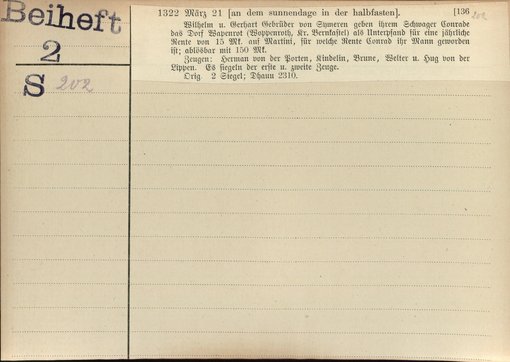 Beiheft
2
S 202
1322 März 21 [an dem sunnendage in der halbfasten]. [136 202
Wilhelm u. Gerhart Gebrüder von Symeren geben ihrem Schwager Conrade
das Dorf Wapenrot (Woppenroth, Kr. Bernkastel) als Unterpfand für eine jährliche
Rente von 15 Mk. auf Martini, für welche Rente Conrad ihr Mann geworden
ist; ablösbar mit 150 Mk.
Zeugen: Herman von der Porten, Kindelin, Brume, Welter u. Hug von der
Lippen. Es siegeln der erste u. zweite Zeuge.
Orig. 2 Siegel; Dhaun 2310.